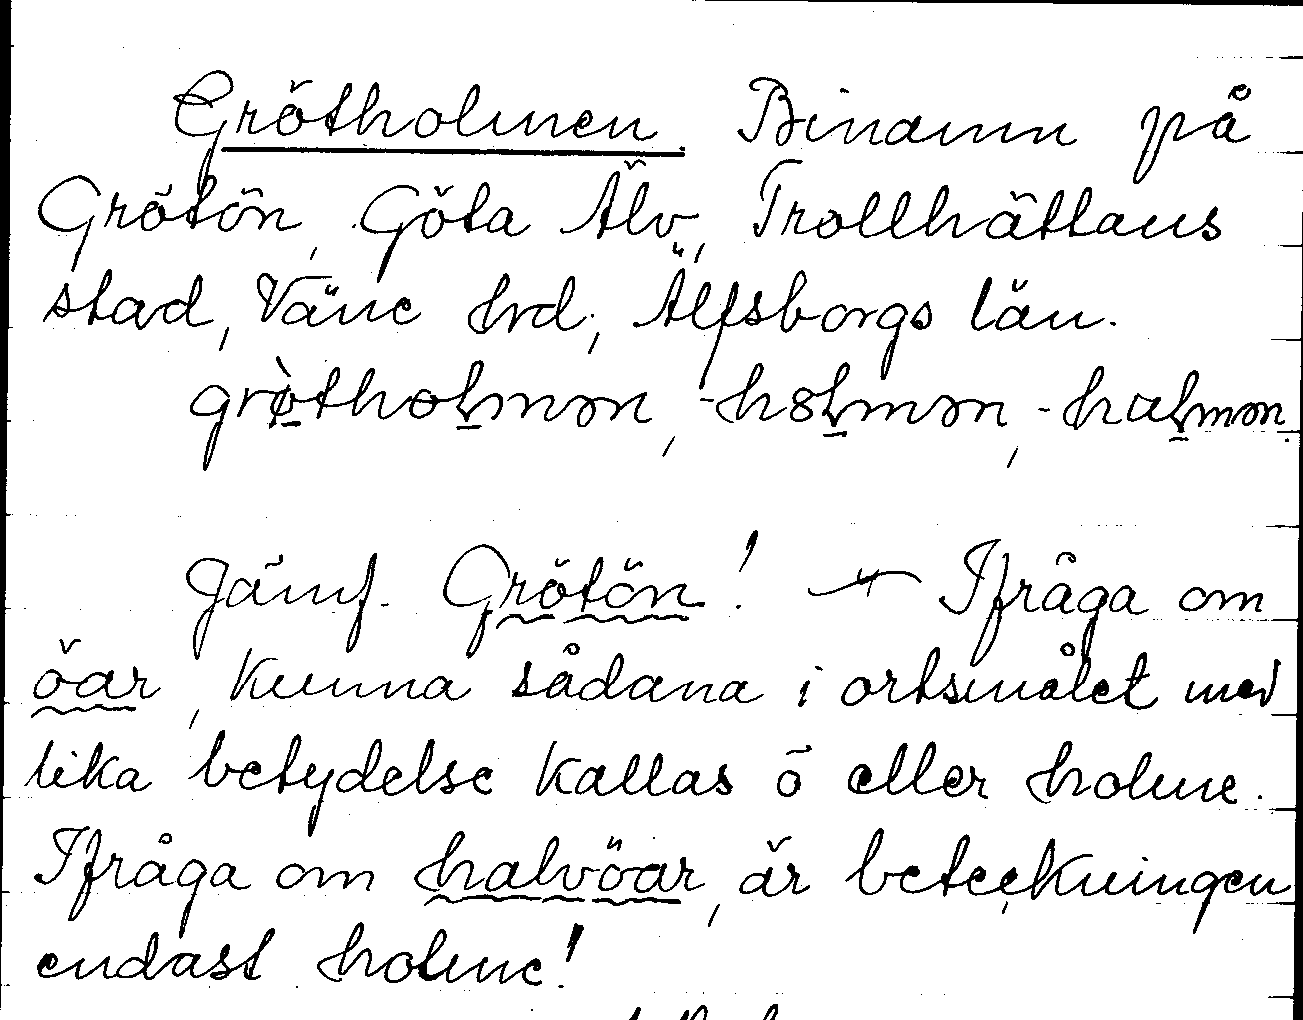 Grötholmen. Binamn på
Grötön, Göta Älv, Trollhättans
stad, Väne hrd., Älfsborgs län.
grø̀tholmən, -h8lmən, -halmən.
Jämf. Grötön! — Ifråga om
öar, kunna sådana i ortsmålet med
lika betydelse kallas ö eller holme.
Ifråga om halvöar, är beteckningen
endast holme!